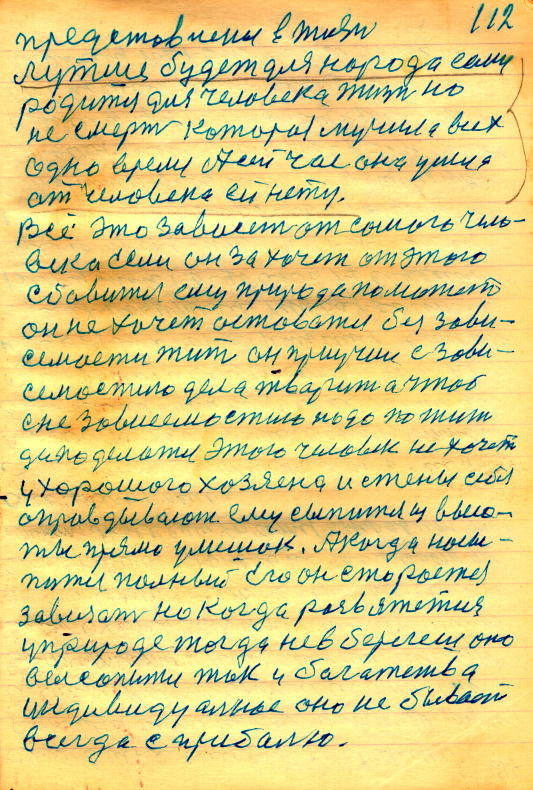 112
представлены в жизни
лутше будет для народа если
родится для человека жизн но
не смерт Которая мучила всех
одно время А сейчас она ушла
от человека ей нету.
Всё это зависит от самого чело-
века если он захочет от этого
сбавится ему природа поможет
он не хочет оставатся без зави-
семости жит он приучен с зави-
семостию дела тварит а чтоб
с не зависемостию надо пожит
да поделати этого человек не хочет
у хорошого хозяена и стены себя
оправдывают. Ему сыпится из высо-
ты прямо у мешок. А когда насы-
пится полный его он стороется
завязат но когда розвяжется
у природе тогда не вберегеш оно
высыпится так и богатства
индивидуалное оно не бывает
всегда с прибалю.